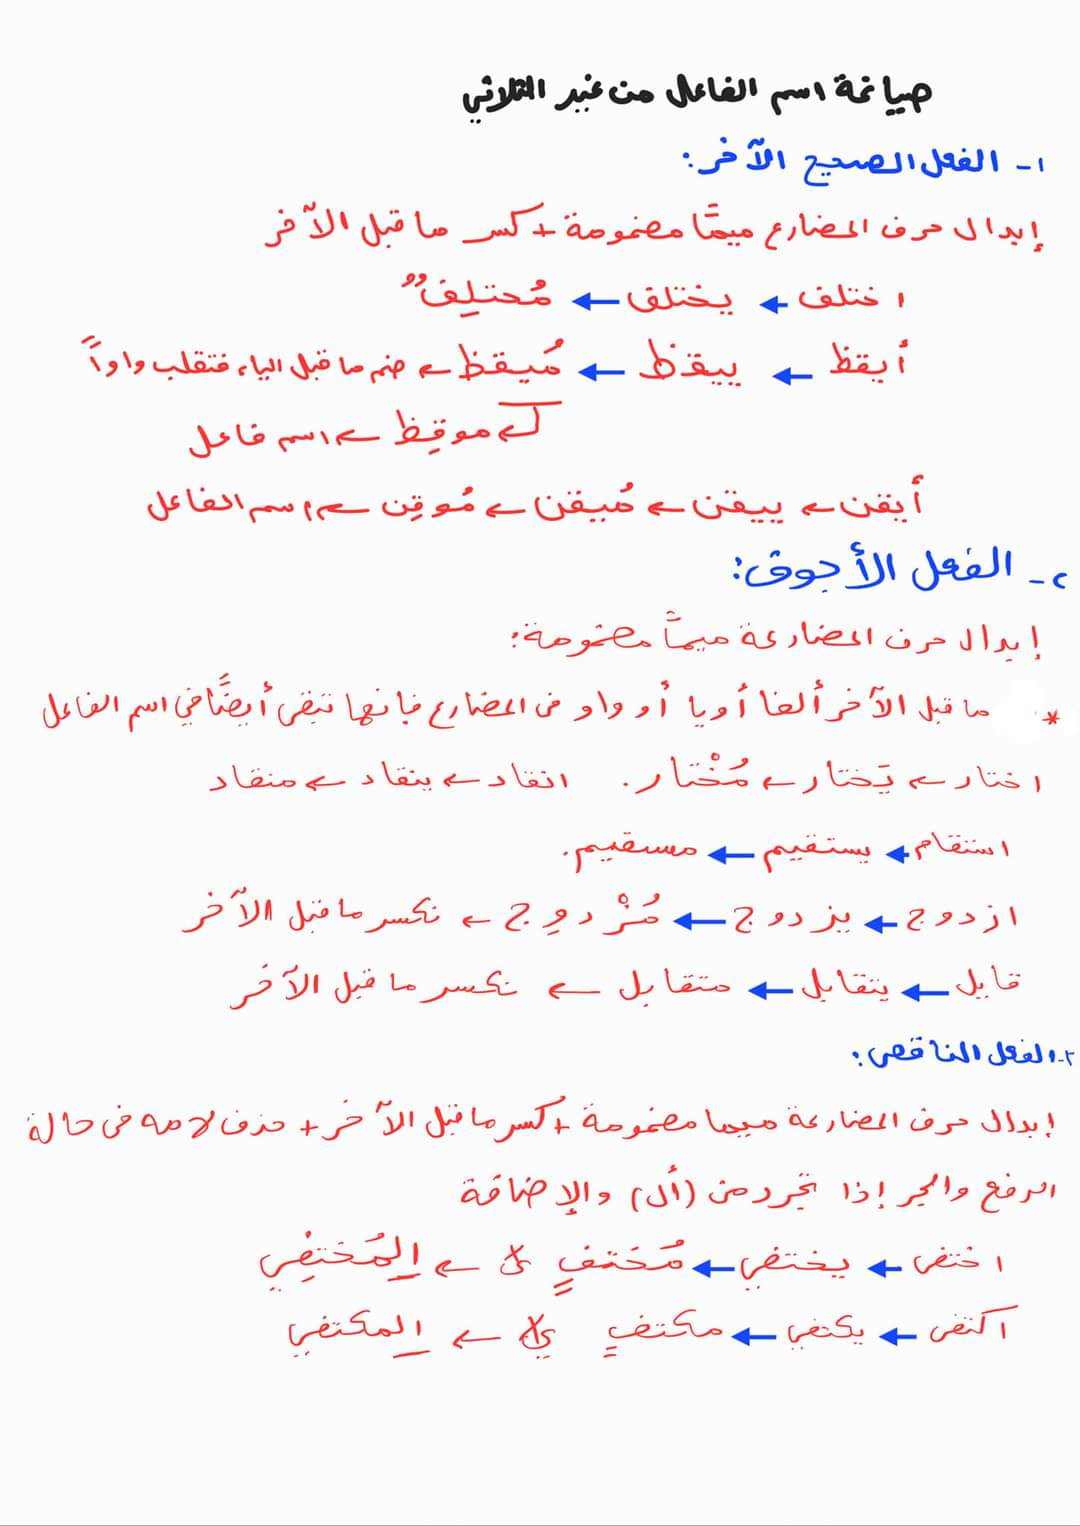 صياغة اسم الفاعل من غير الثلاثي
١- الفعل الصحيح الآخر:
إبدال حرف المضارع ميمًا مضمومة + كسر ما قبل الآخر
اختلف ← يختلف ← مُختلِفٌ
أيقظ ← ييقظ ← مُيقظ ← ضم ما قبل الياء فتقلب واواً
← موقِظ ← اسم فاعل
أيقن ← ييقن ← مُيقن ← مُوقِن ← اسم الفاعل
٢- الفعل الأجوف:
إبدال حرف المضارعة ميمًا مضمومة:
* ما قبل الآخر ألفا أو يا أو واو في المضارع فإنها تبقى أيضًا في اسم الفاعل
اختار ← يَختار ← مُخْتار. انقاد ← ينقاد ← منقاد
استقام ← يستقيم ← مستقيم.
ازدوج ← يزدوج ← مُزْدوِج ← نكسر ما قبل الآخر
قابل ← يتقابل ← متقابل ← نكسر ما قبل الآخر
٣- الفعل الناقص:
إبدال حرف المضارعة ميما مضمومة + كسر ما قبل الآخر + حذف لامه في حالة
الرفع والجر إذا تجرد من (أل) والإضافة
اختفى ← يختفي ← مُختفٍ ى ← المُختفِي
اكتفى ← يكتفي ← مكتفٍ ي ← المكتفي